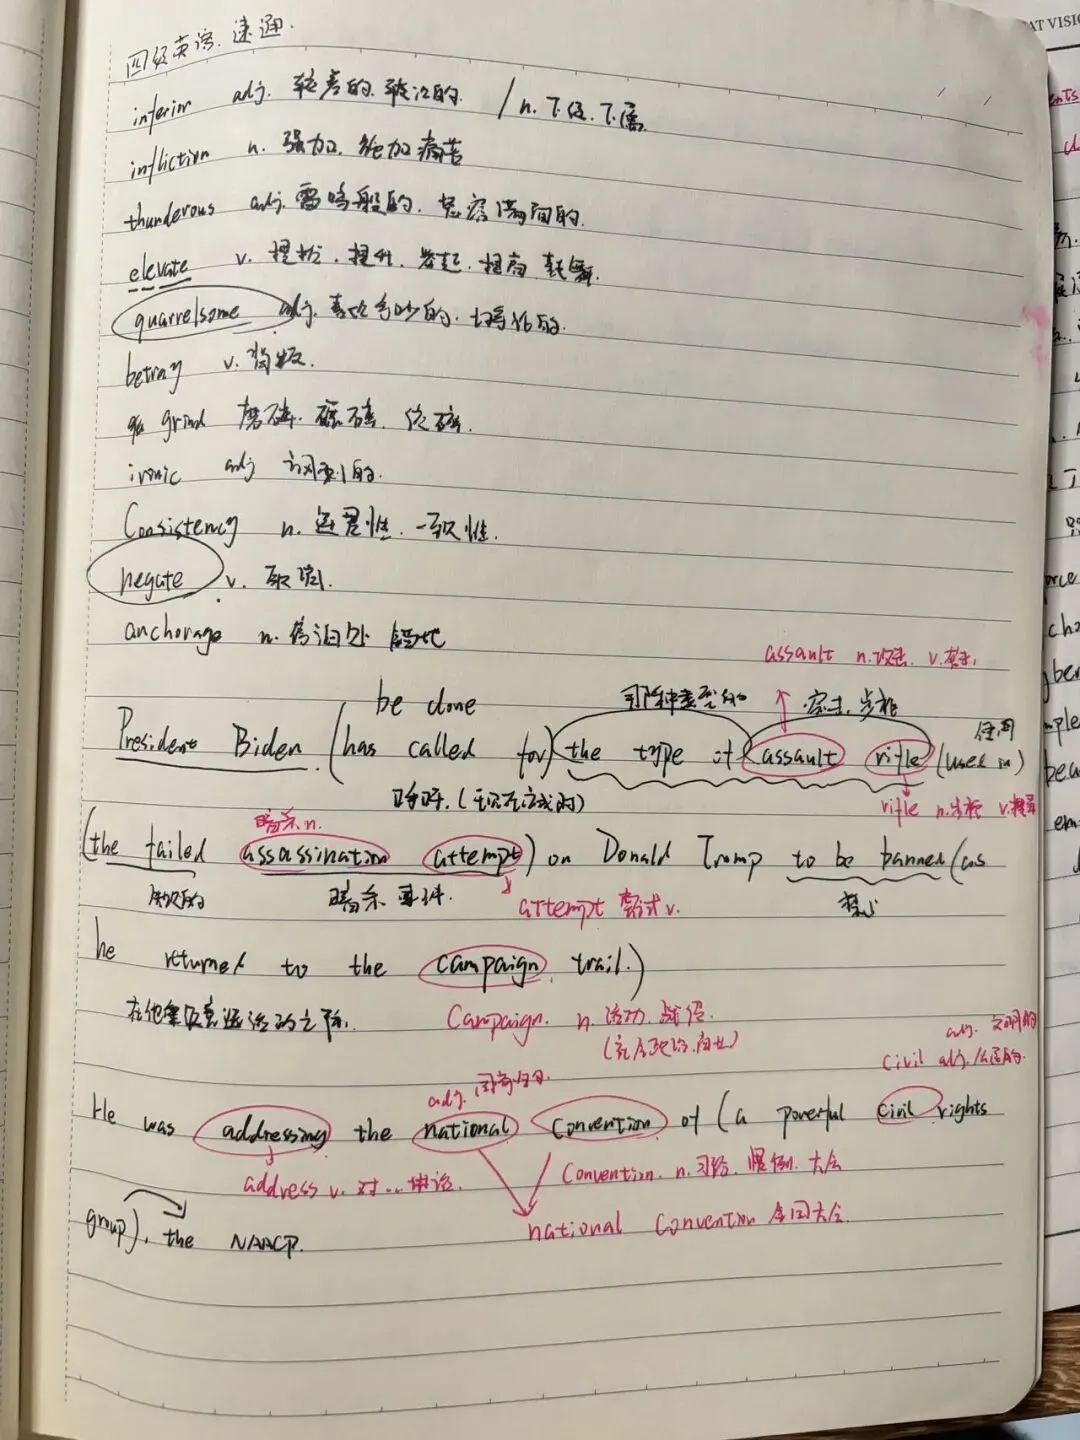 四级英语.速通.
inferior adj. 较差的.较次的. / n.下级.下属.
infliction n. 强加.施加痛苦
thunderous adj. 雷鸣般的.怒容满面的.
elevate v. 提拔.提升.举起.提高
quarrelsome adj. 喜欢争吵的.
betray v. 背叛.
grind 磨碎.碾碎.
ironic adj 讽刺的.
Consistency n. 连贯性.一致性.
negate v. 取消.
anchorage n. 停泊处 锚地
assault n.攻击. v.攻击.
be done 那种类型的 突击.步枪 使用
President Biden (has called for) the type of assault rifle (used in)
呼吁.(现在完成时) rifle n.步枪
暗杀n.
(the failed assassination attempt) on Donald Trump to be banned (as
失败的 暗杀事件. attempt 尝试 v. 禁止
he returned to the campaign trail.)
Campaign. n. 活动.战役.
adj. 文明的
adj. civil adj.
He was addressing the national Convention of (a powerful civil rights
address v. 对...讲话. Convention. n.习俗.惯例.大会
group), the NAACP. national Convention 全国大会.